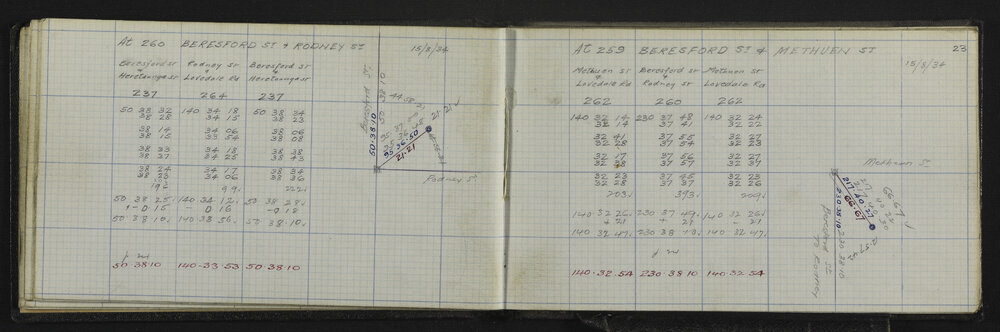 At 260 BERESFORD ST & RODNEY ST 15/8/34
Beresford St Rodney St Beresford St
& & &
Heretaunga St Lovedale Rd Heretaunga St
237 264 237
50 38 32 140 34 18 50 38 34
38 28 34 15 38 23
38 14 34 06 38 06
38 15 33 54 38 08
38 33 34 18 38 38
38 37 34 25 38 43
38 24 34 17 38 34
38 23 34 06 38 36
196 99 222
50 38 25 140 34 12 50 38 28
-0 15 -0 16 -0 18
50 38 10 140 33 56 50 38 10
50·38·10 140·33·53 50·38·10
Beresford St.
50 38 10
50·38·10
21·21
21·21
Rodney St
23
At 259 BERESFORD ST & METHUEN ST
15/8/34
Methuen St Beresford St Methuen St
& & &
Lovedale Rd Rodney St Lovedale Rd
262 260 262
140 32 14 230 37 48 140 32 24
32 14 37 41 32 22
32 41 37 55 32 27
32 28 37 54 32 23
32 17 37 56 32 27
32 28 37 57 32 37
32 23 37 45 32 23
32 28 37 37 32 26
203 393 209
140 32 26 230 37 49 140 32 26
+ 21 + 21 + 21
140 32 47 230 38 10 140 32 47
140·32·54 230·38·10 140·32·54
Methuen St
217·40·27
66·67
66·67
230·38·10
230 38 10
Beresford St
To Rodney